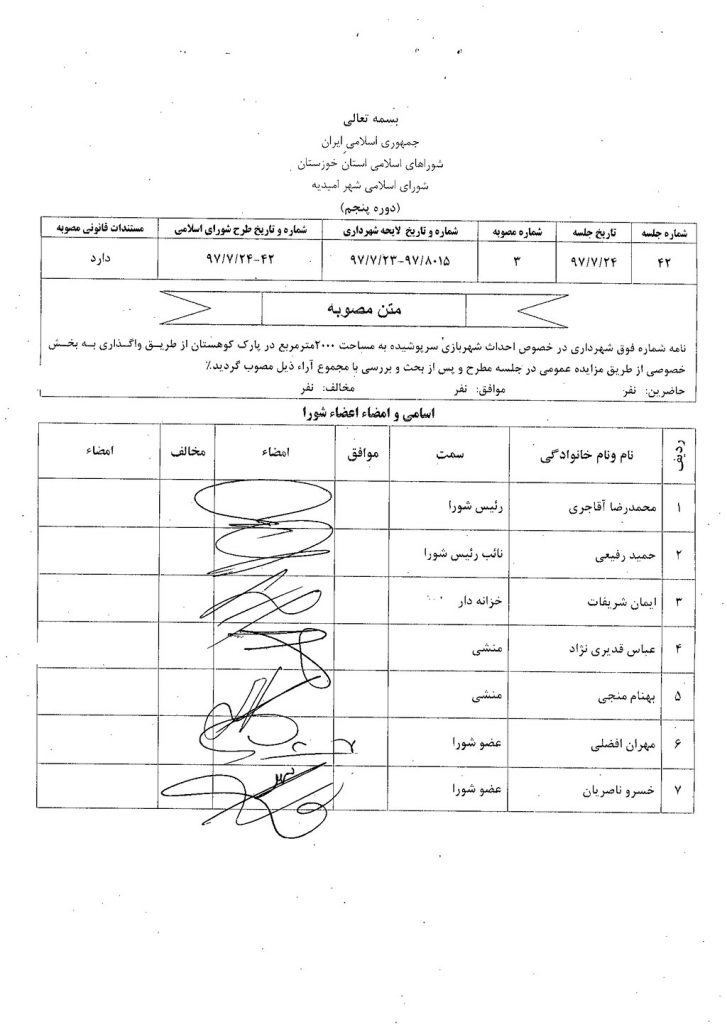 بسمه تعالی
جمهوری اسلامی ایران
شوراهای اسلامی استان خوزستان
شورای اسلامی شهر امیدیه
(دوره پنجم)
شماره جلسه تاریخ جلسه شماره مصوبه شماره و تاریخ لایحه شهرداری شماره و تاریخ طرح شورای اسلامی مستندات قانونی مصوبه
۴۲ ۹۷/۷/۲۴ ۳ ۹۷/۷/۲۳-۹۷/۸۰۱۵ ۹۷/۷/۲۴-۴۲ دارد
متن مصوبه
نامه شماره فوق شهرداری در خصوص احداث شهربازی سرپوشیده به مساحت ۲۰۰۰مترمربع در پارک کوهستان از طریق واگذاری به بخش
خصوصی از طریق مزایده عمومی در جلسه مطرح و پس از بحث و بررسی با مجموع آراء ذیل مصوب گردید.٪
حاضرین: نفر موافق: نفر مخالف: نفر
اسامی و امضاء اعضاء شورا
ردیف نام ونام خانوادگی سمت موافق امضاء مخالف امضاء
۱ محمدرضا آقاجری رئیس شورا
۲ حمید رفیعی نائب رئیس شورا
۳ ایمان شریفات خزانه دار
۴ عباس قدیری نژاد منشی
۵ بهنام منجی منشی
۶ مهران افضلی عضو شورا
۷ خسرو ناصریان عضو شورا